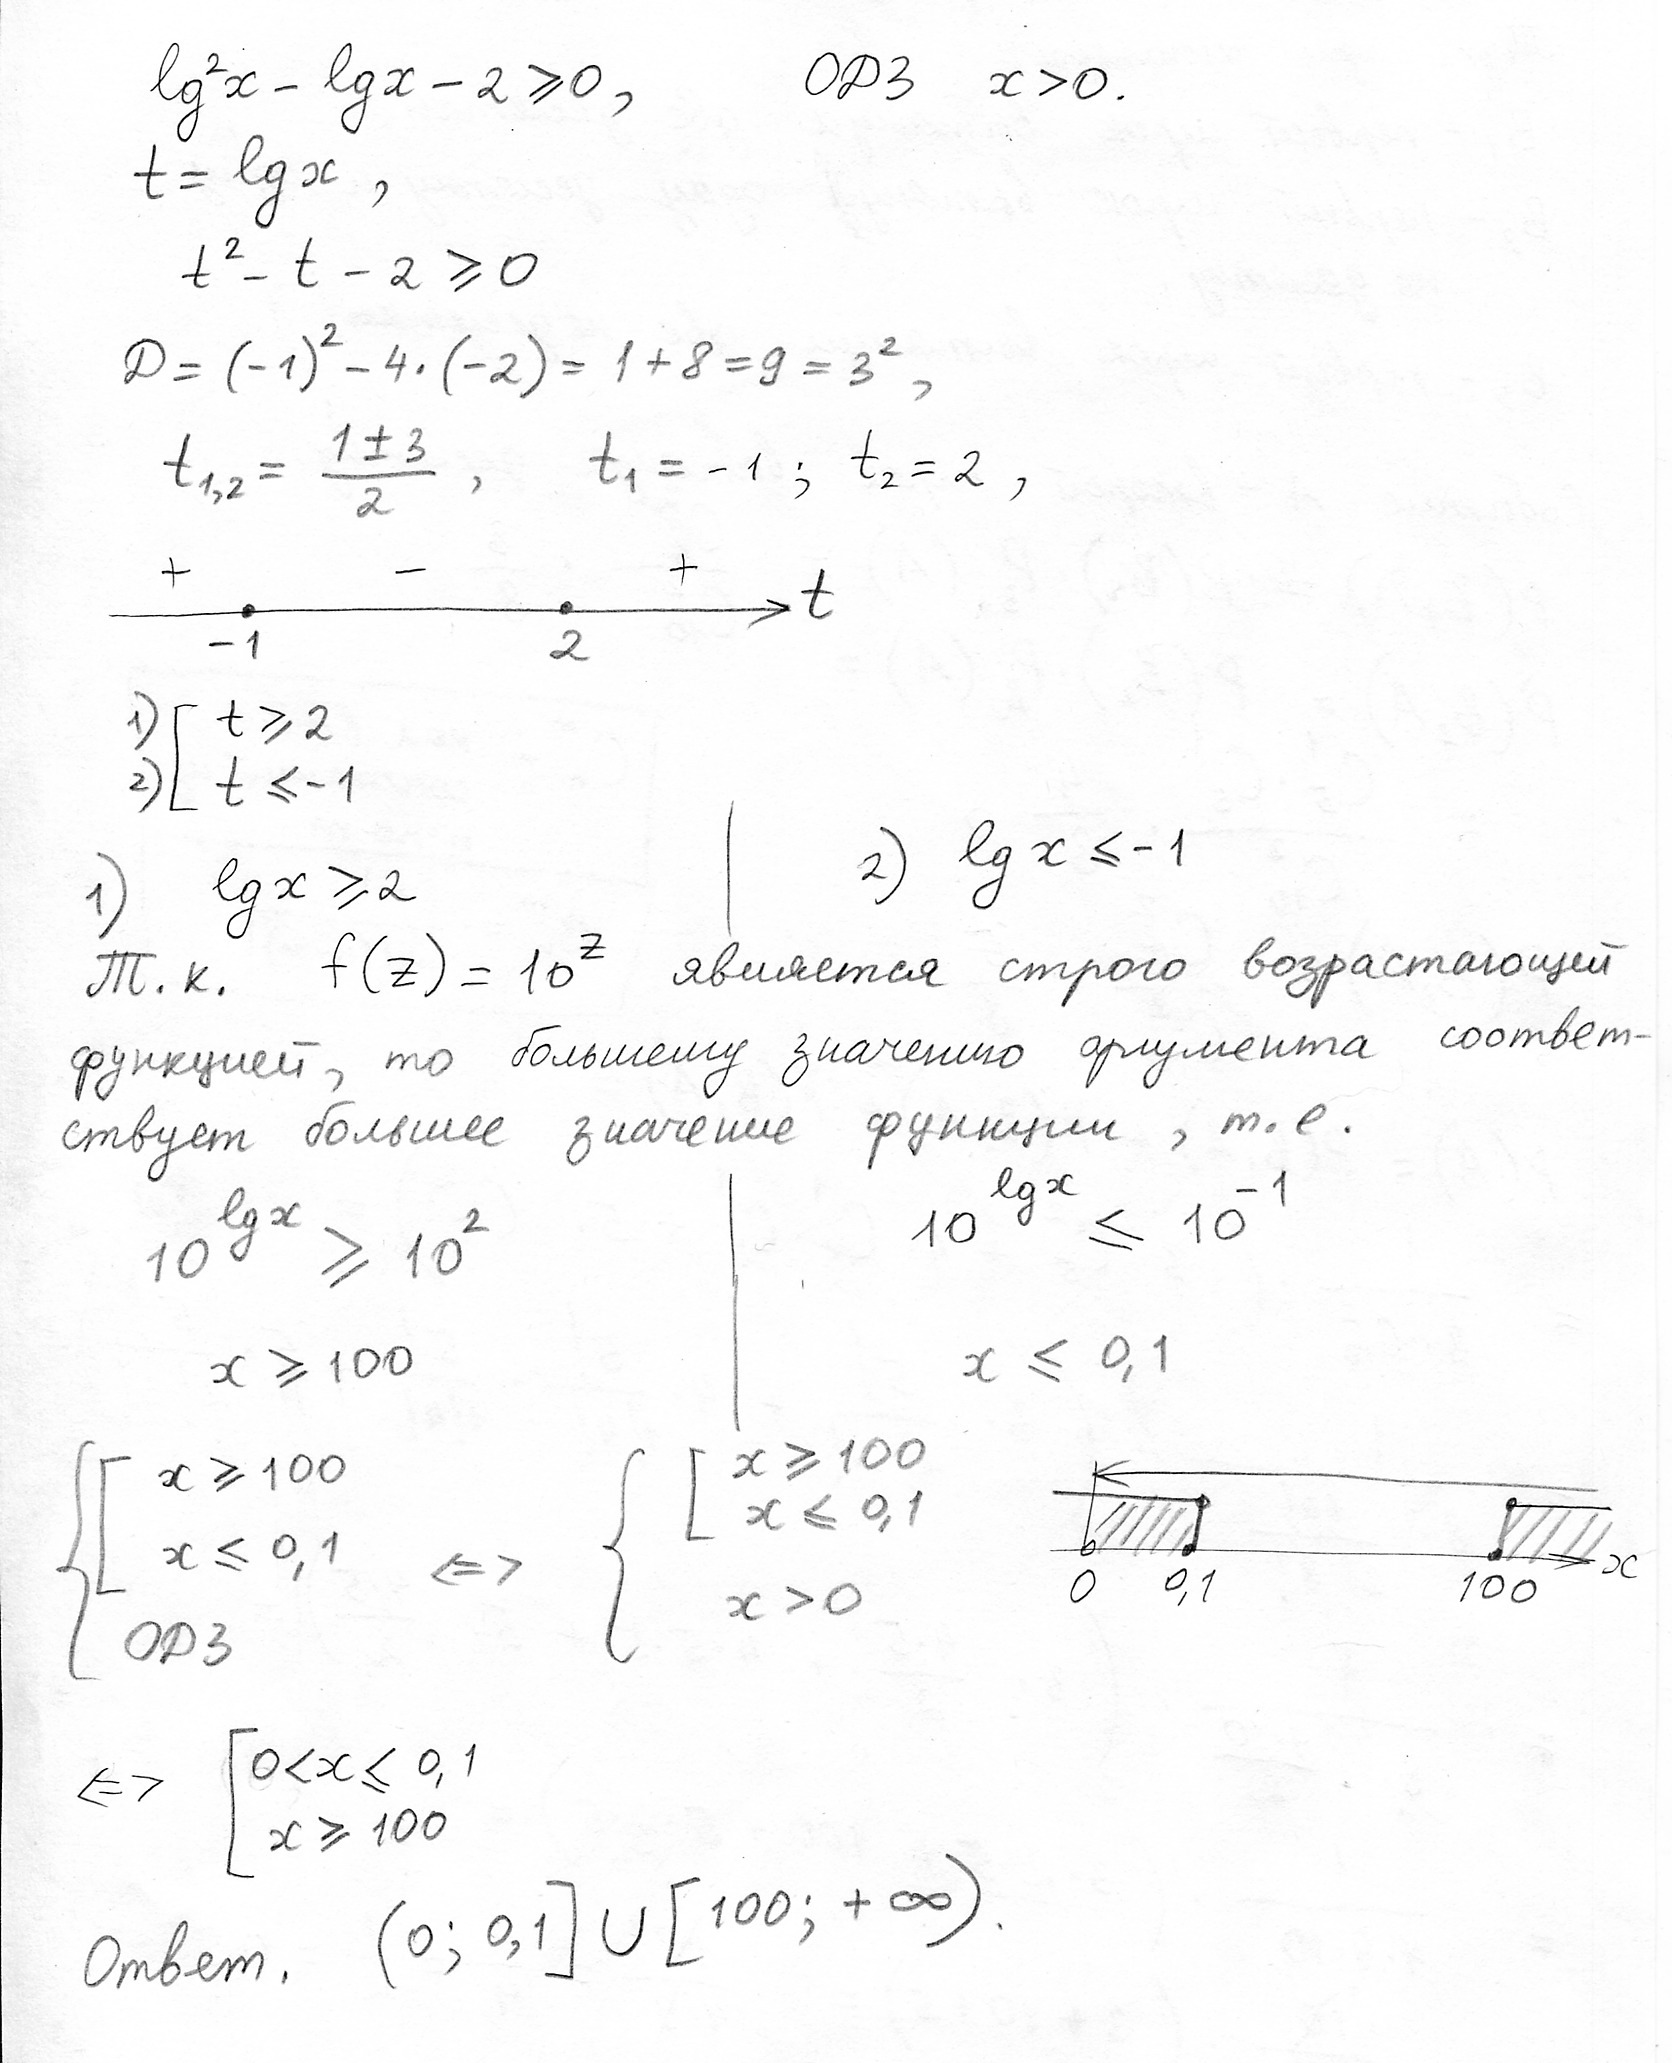 lg²x − lgx − 2 ⩾ 0, ОДЗ x > 0.
t = lgx,
t² − t − 2 ⩾ 0
D = (−1)² − 4·(−2) = 1 + 8 = 9 = 3²,
t₁,₂ = (1 ± 3)/2, t₁ = −1; t₂ = 2,
+ − +
−1 2 t
1) [ t ⩾ 2
2) [ t ⩽ −1
1) lgx ⩾ 2 2) lgx ⩽ −1
Т.к. f(z) = 10^z является строго возрастающей
функцией, то большему значению аргумента соответ-
ствует большее значение функции, т.е.
10^lgx ⩾ 10² 10^lgx ⩽ 10⁻¹
x ⩾ 100 x ⩽ 0,1
{ [ x ⩾ 100
x ⩽ 0,1
ОДЗ
<=> { [ x ⩾ 100
x ⩽ 0,1
x > 0
0 0,1 100 x
<=> [ 0 < x ⩽ 0,1
x ⩾ 100
Ответ. (0; 0,1] ∪ [100; +∞).